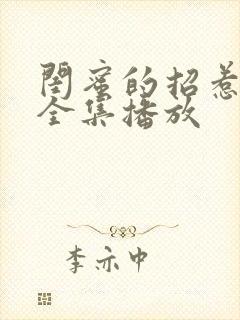 闺蜜的招惹
全集播放
李亦中